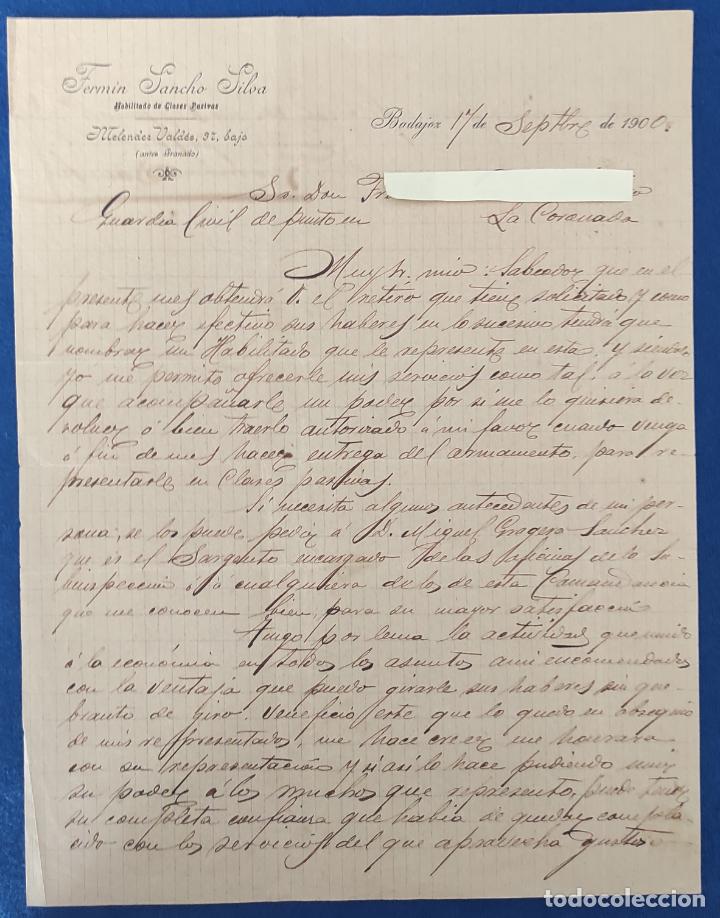 Fermín Sancho Silva
Habilitado de Clases Pasivas
Melendez Valdés, 37, bajo
(antes Granado)
Badajoz 17 de Septbre de 1900.
Sr. Don Fr
Guardia Civil de puesto en La Coronada
Muy Sr. mio: Sabedor que en el
presente mes obtendrá V. el retiro que tiene solicitado y como
para hacer efectivo sus haberes en lo sucesivo tendrá que
nombrar un Habilitado que le represente en esta y siendo
yó me permito ofrecerle mis servicios como tal. á la vez
que acompañarle un poder por si me lo quisiera de-
volver ó bien traerlo autorizado á mi favor cuando venga
á fin de mes hacer entrega del armamento, para re-
presentarle en Clases pasivas.
Si necesita algunos antecedentes de mi per-
sona, se los puede pedir á D. Miguel Sanchez
que es el Sargento encargado de las oficinas de la Su-
binspeccion ó á cualquiera de los de esta Comandancia
que me conocen bien, para su mayor satisfacción
Tengo por lema la actividad que unido
á la económia en todos los asuntos a mi encomendados
con la ventaja que puedo girarle sus haberes sin que-
branto de giro. Veneficio este que lo quedo en obsequio
de mis representados, me hace creer me honrara
con su representación y si asi lo hace pudiendo unir
su poder á los muchos que represento, puede tener
su completa confianza que habia de quedar compla-
cido con los servicios del que aprovecha gustoso
todocoleccion
todocoleccion.net